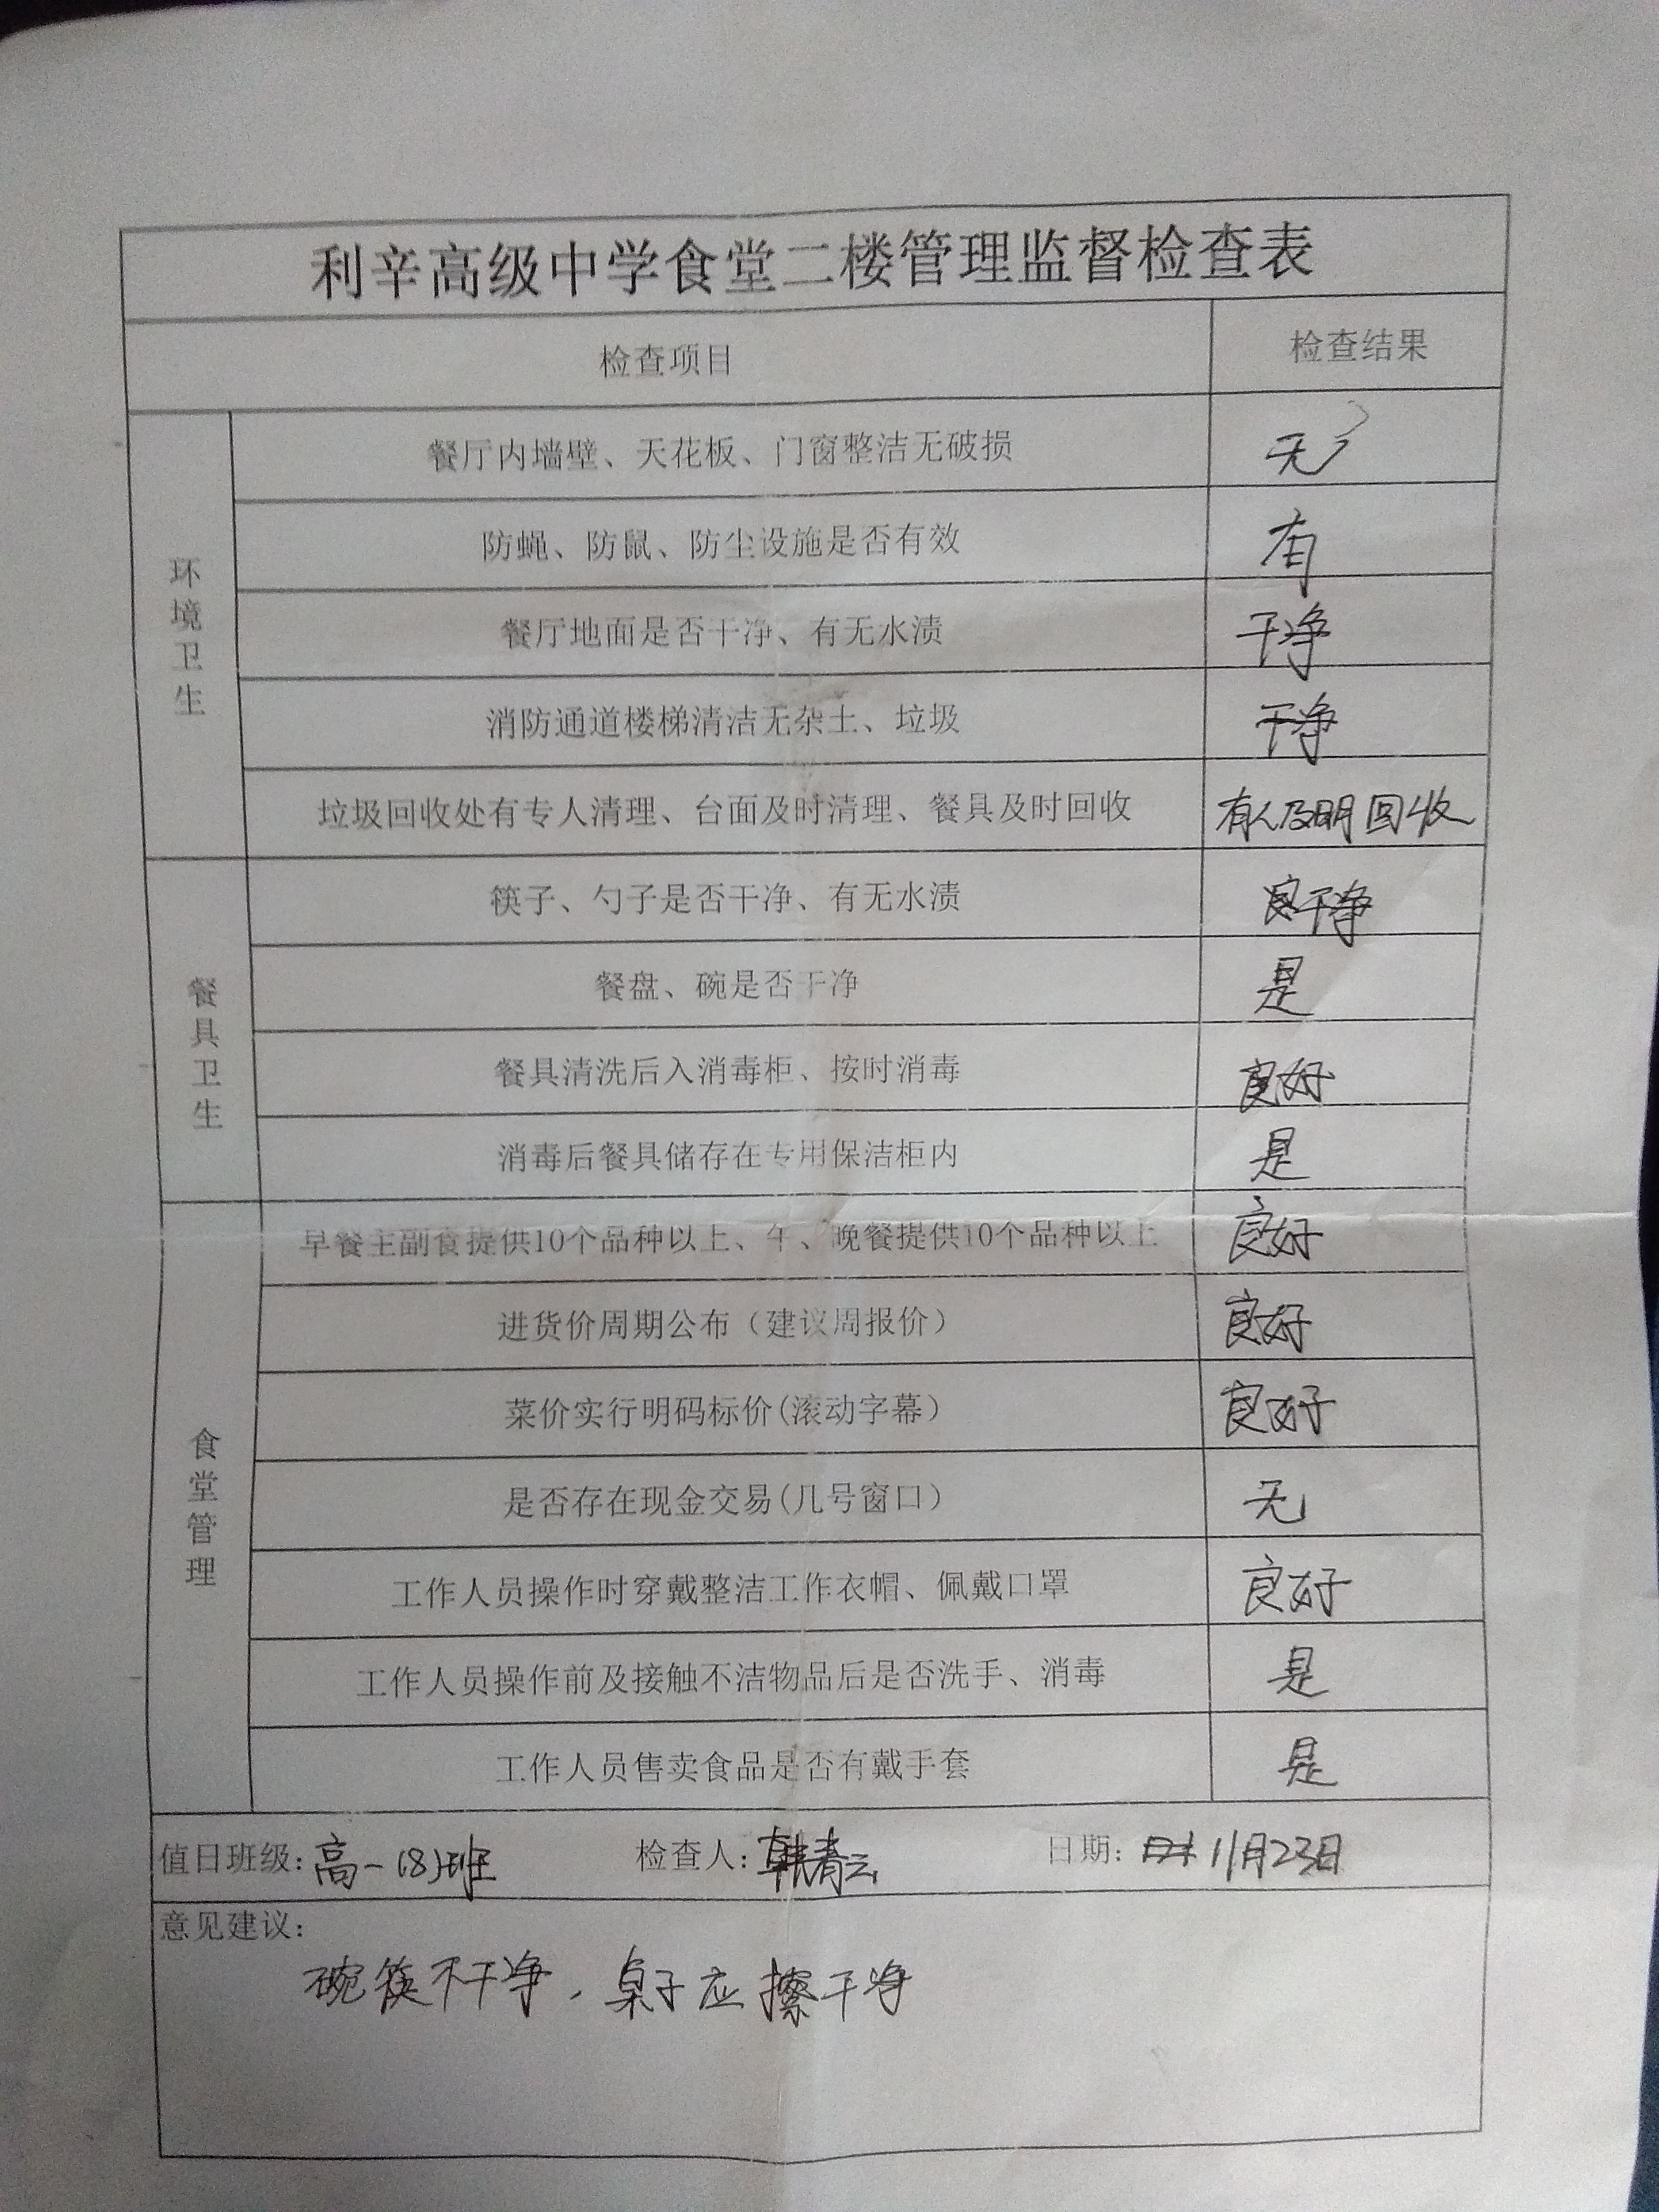 利辛高级中学食堂二楼管理监督检查表
检查项目 检查结果
环境卫生
餐厅内墙壁、天花板、门窗整洁无破损 无
防蝇、防鼠、防尘设施是否有效 有
餐厅地面是否干净、有无水渍 干净
消防通道楼梯清洁无杂土、垃圾 干净
垃圾回收处有专人清理、台面及时清理、餐具及时回收 有人及时回收
餐具卫生
筷子、勺子是否干净、有无水渍 干净
餐盘、碗是否干净 是
餐具清洗后入消毒柜、按时消毒 良好
消毒后餐具储存在专用保洁柜内 是
食堂管理
早餐主副食提供10个品种以上、午、晚餐提供10个品种以上 良好
进货价周期公布（建议周报价） 良好
菜价实行明码标价(滚动字幕） 良好
是否存在现金交易(几号窗口） 无
工作人员操作时穿戴整洁工作衣帽、佩戴口罩 良好
工作人员操作前及接触不洁物品后是否洗手、消毒 是
工作人员售卖食品是否有戴手套 是
值日班级：高一（8）班 检查人：韩青云 日期：11月23日
意见建议：
碗筷不干净，桌子应擦干净